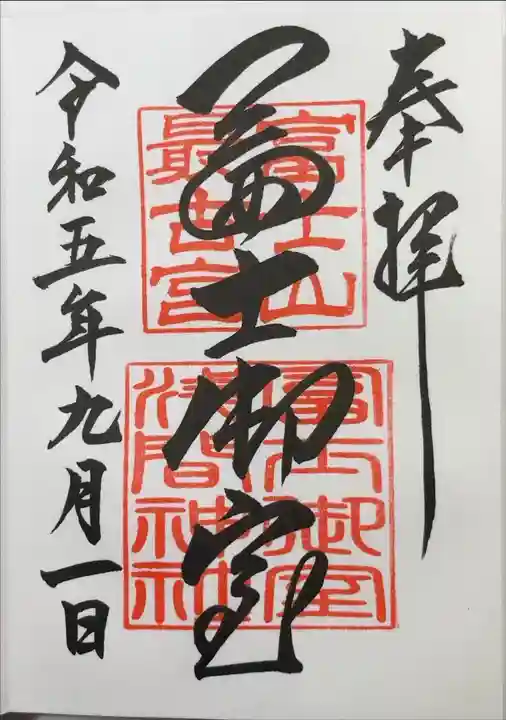 奉拝
富士御室
富士山
最古宮
富士御室
浅間神社
令和五年九月一日